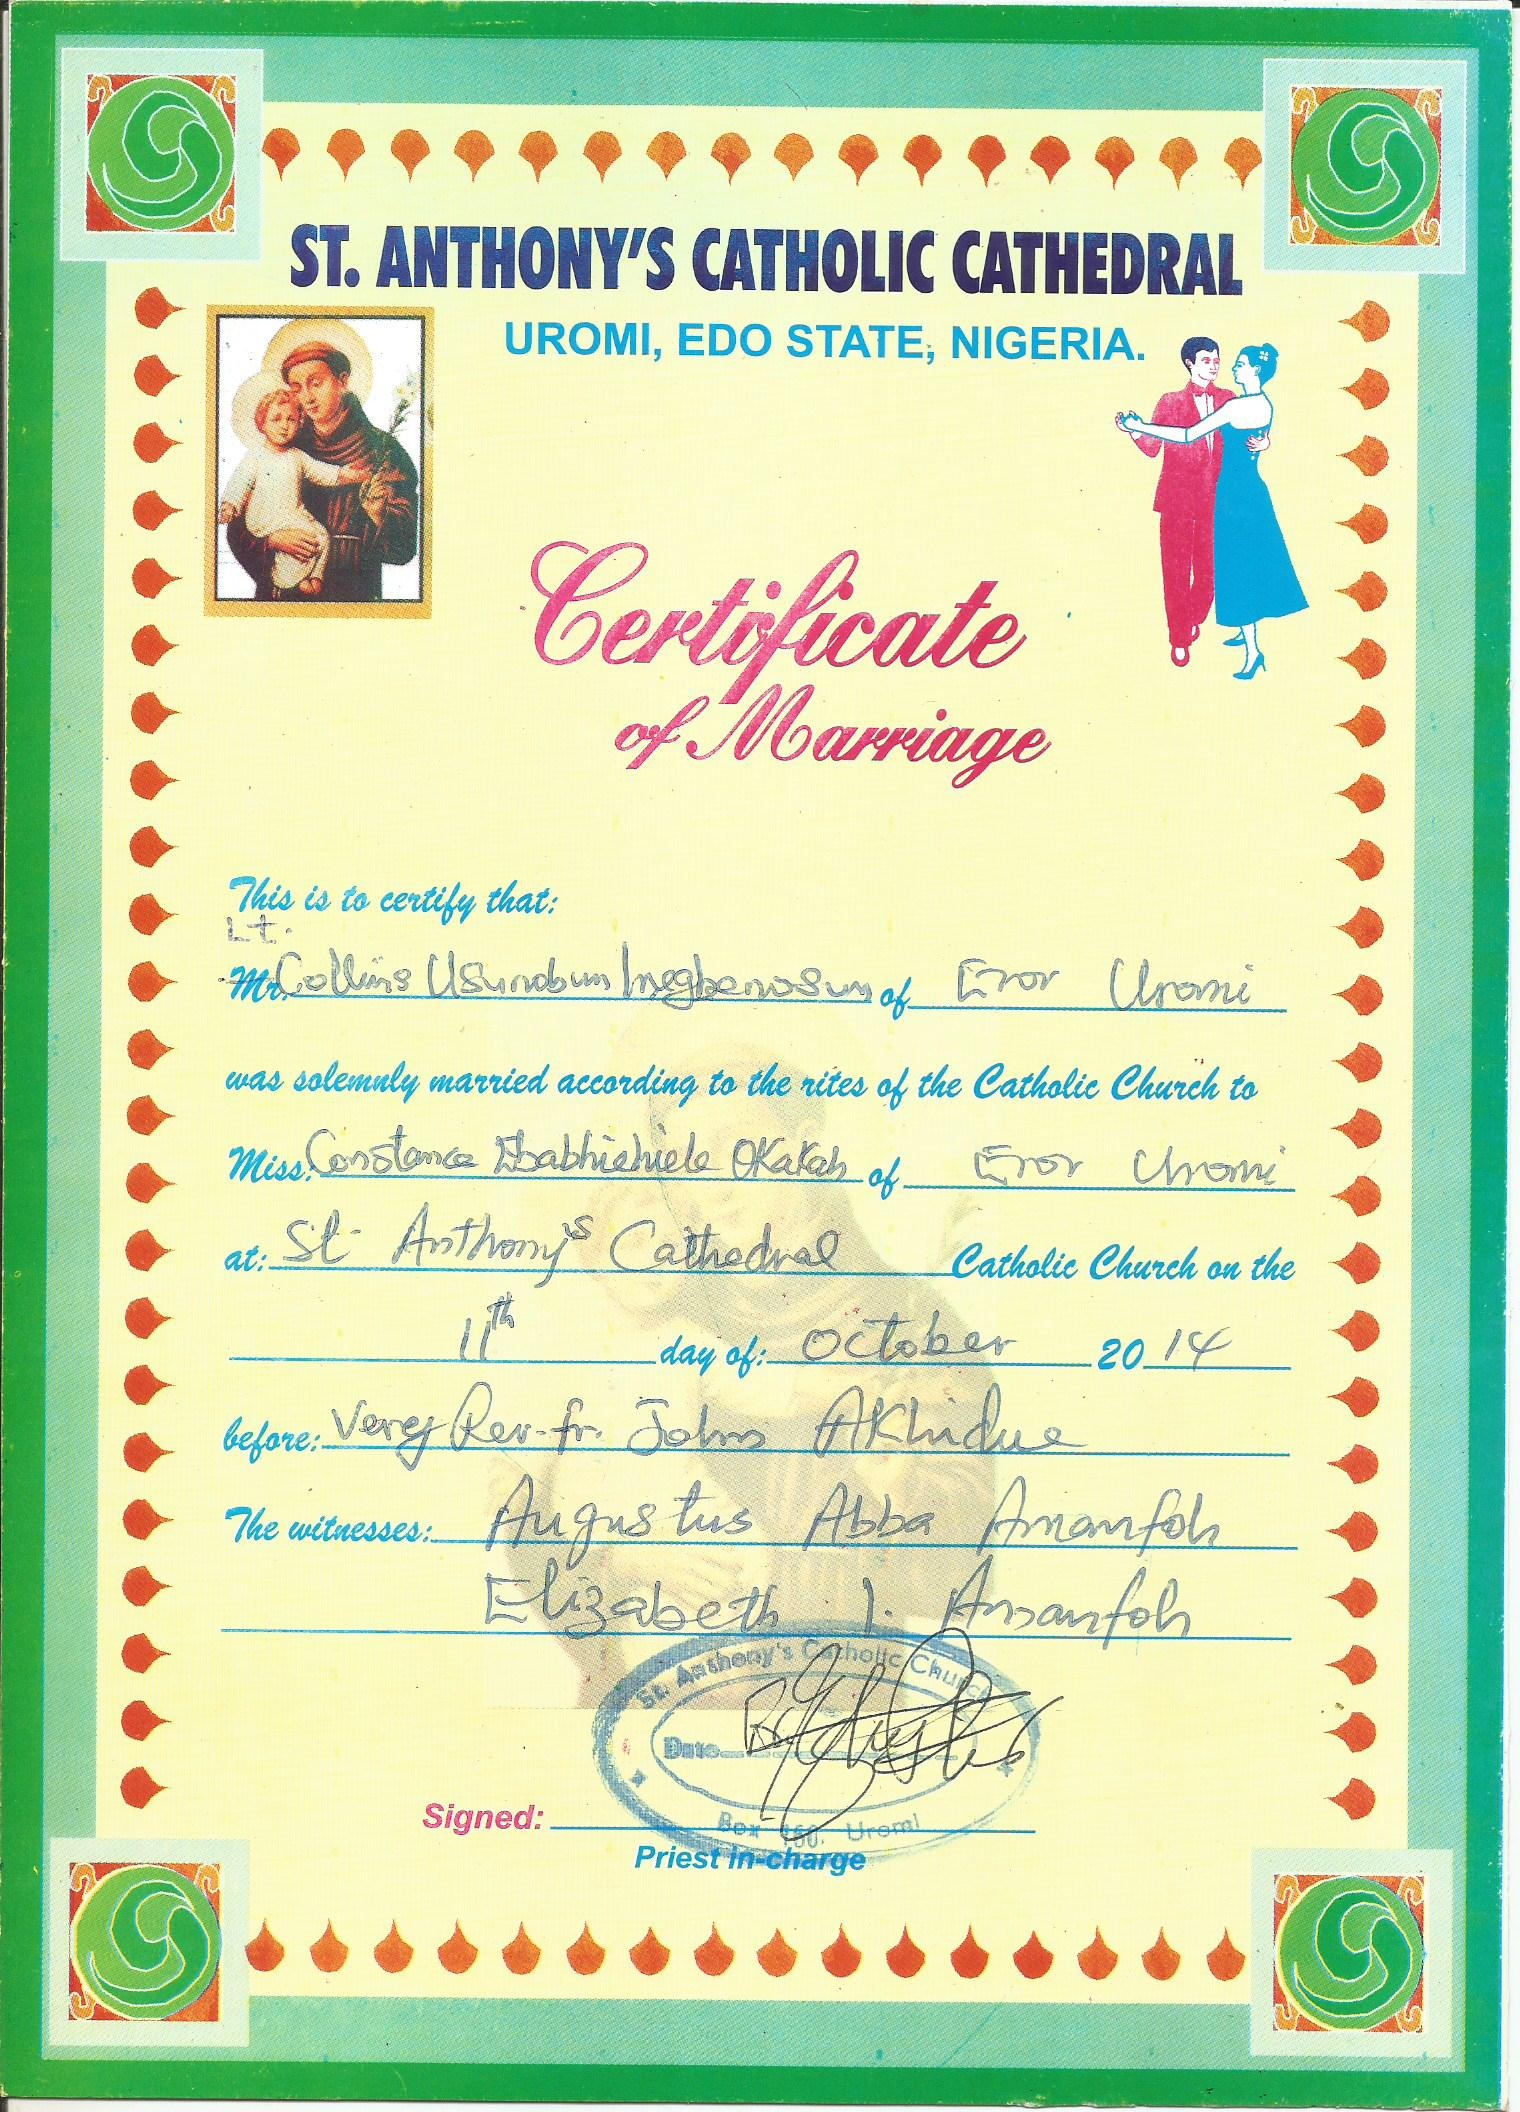 ST. ANTHONY'S CATHOLIC CATHEDRAL
UROMI, EDO STATE, NIGERIA.
Certificate
of Marriage
This is to certify that:
Lt.
Mr. Collins Usunobun Inegbenosun of Eror Uromi
was solemnly married according to the rites of the Catholic Church to
Miss: Constance Ebabhiehiele Okakah of Eror Uromi
at: St. Anthony's Cathedral Catholic Church on the
11th day of: October 2014
before: Very Rev. fr. John Akhidue
The witnesses: Augustus Abba Amanfoh
Elizabeth I. Amanfoh
St. Anthony's Catholic Church
Date
Box 150. Uromi
Signed:
Priest in-charge